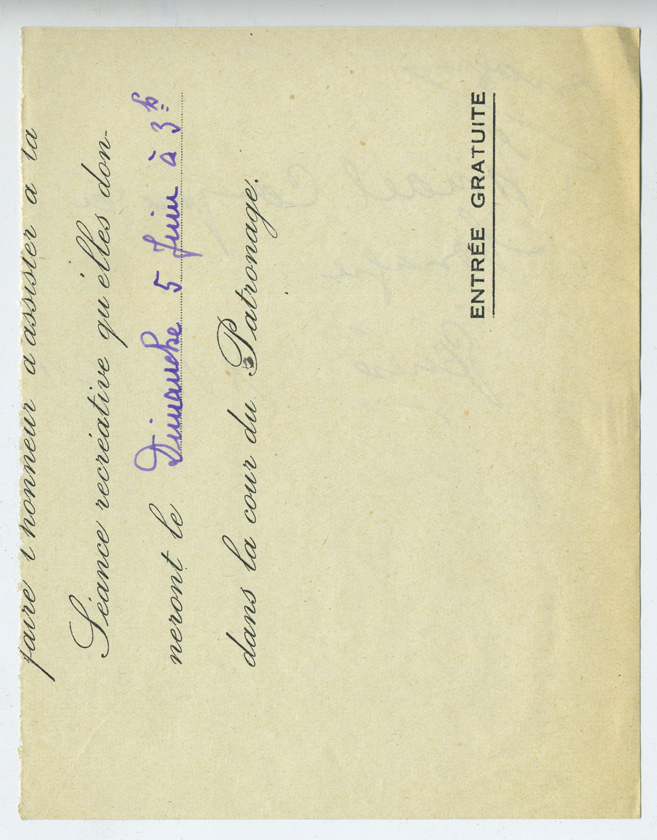 faire l'honneur d'assister à la
Séance recréative qu'elles don-
neront le Dimanche 5 Juin à 3h
dans la cour du Patronage.
ENTRÉE GRATUITE